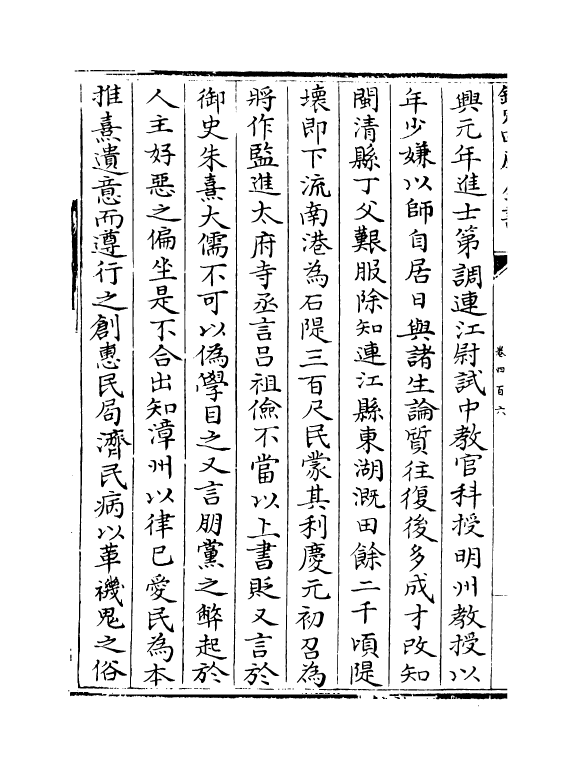 興元年進士第調連江尉試中教官科授明州教授以
年少嫌以師自居日與諸生論質往復後多成才改知
閩清縣丁父艱服除知連江縣東湖溉田餘二千頃隄
壞即下流南港為石隄三百尺民蒙其利慶元初召為
將作監進太府寺丞言吕祖儉不當以上書貶又言於
御史朱熹大儒不可以偽學目之又言朋黨之弊起於
人主好惡之偏坐是不合出知漳州以律已愛民為本
推熹遺意而遵行之創惠民局濟民病以革禨鬼之俗
卷四百六